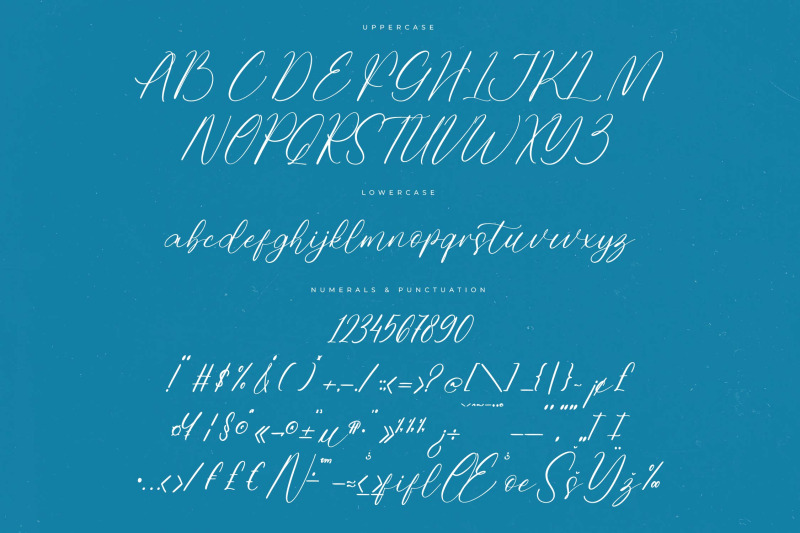 UPPERCASE
A B C D E F G H I J K L M
N O P Q R S T U V W X Y Z
LOWERCASE
abcdefghijklmnopqrstuvwxyz
NUMERALS & PUNCTUATION
1234567890
! " # $ % & ( ) * +,-./:;<=>?@[\]_{|}~¡¢£
¤¥¦§¨©«¬®±´µ¶·¸»¼½¾¿÷ –—
•…‹›/₣₤€№ −≈≤≥fiflŒœŠšŸž‰